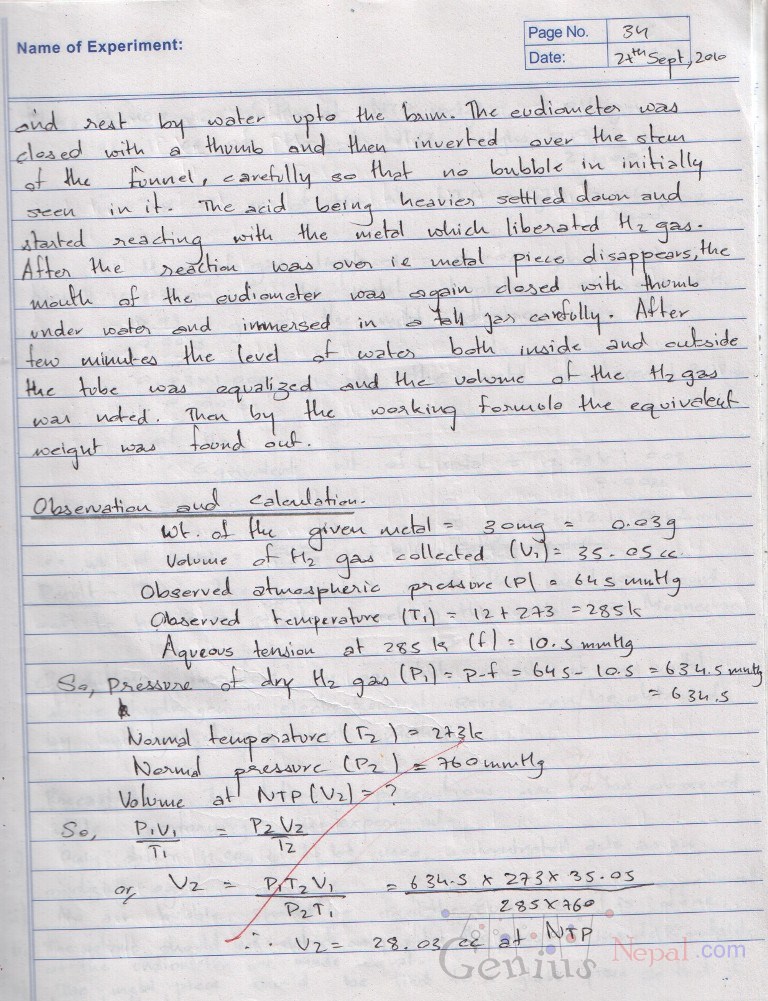 Name of Experiment:
Page No. 34
Date: 27th Sept, 2010
and rest by water upto the brim. The eudiometer was
closed with a thumb and then inverted over the stem
of the funnel, carefully so that no bubble in initially
seen in it. The acid being heavier settled down and
started reacting with the metal which liberated H2 gas.
After the reaction was over ie metal piece disappears, the
mouth of the eudiometer was again closed with thumb
under water and immersed in a tall jar carefully. After
few minutes the level of water both inside and outside
the tube was equalized and the volume of the H2 gas
was noted. Then by the working formula the equivalent
weight was found out.
Observation and calculation.
Wt. of the given metal = 30mg = 0.03g
Volume of H2 gas collected (V1) = 35.05cc
Observed atmospheric pressure (P) = 645 mmHg
Observed temperature (T1) = 12 + 273 = 285k
Aqueous tension at 285 k (f) = 10.5 mmHg
So, Pressure of dry H2 gas (P1) = P-f = 645 - 10.5 = 634.5 mmHg
= 634.5
Normal temperature (T2) = 273k
Normal pressure (P2) = 760 mmHg
Volume at NTP (V2) = ?
So, P1V1/T1 = P2V2/T2
or, V2 = P1T2V1/P2T1 = 634.5 x 273 x 35.05/285 x 760
∴ V2 = 28.03 cc at NTP
Genius Nepal.com